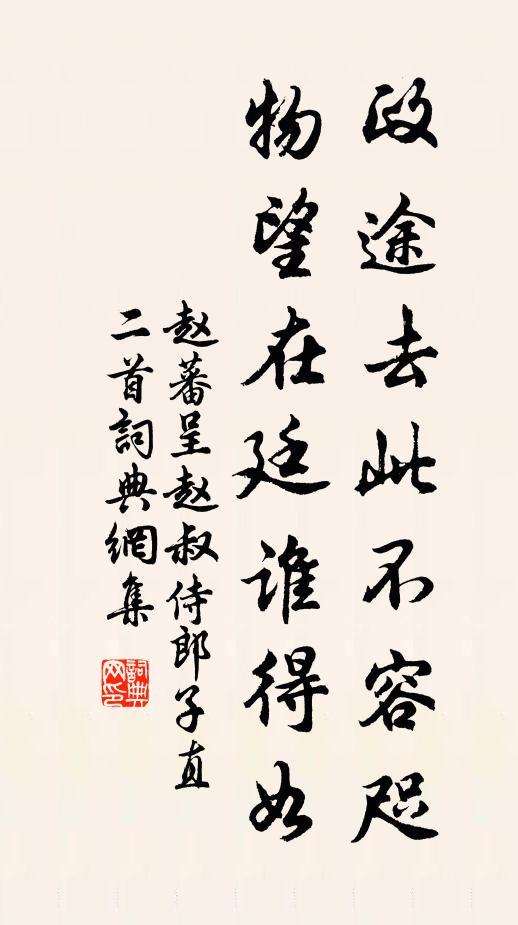 政途去此不容咫
物望在廷谁得如
赵蕃呈赵叔侍郎子直
二首詞典網集
詞典网印